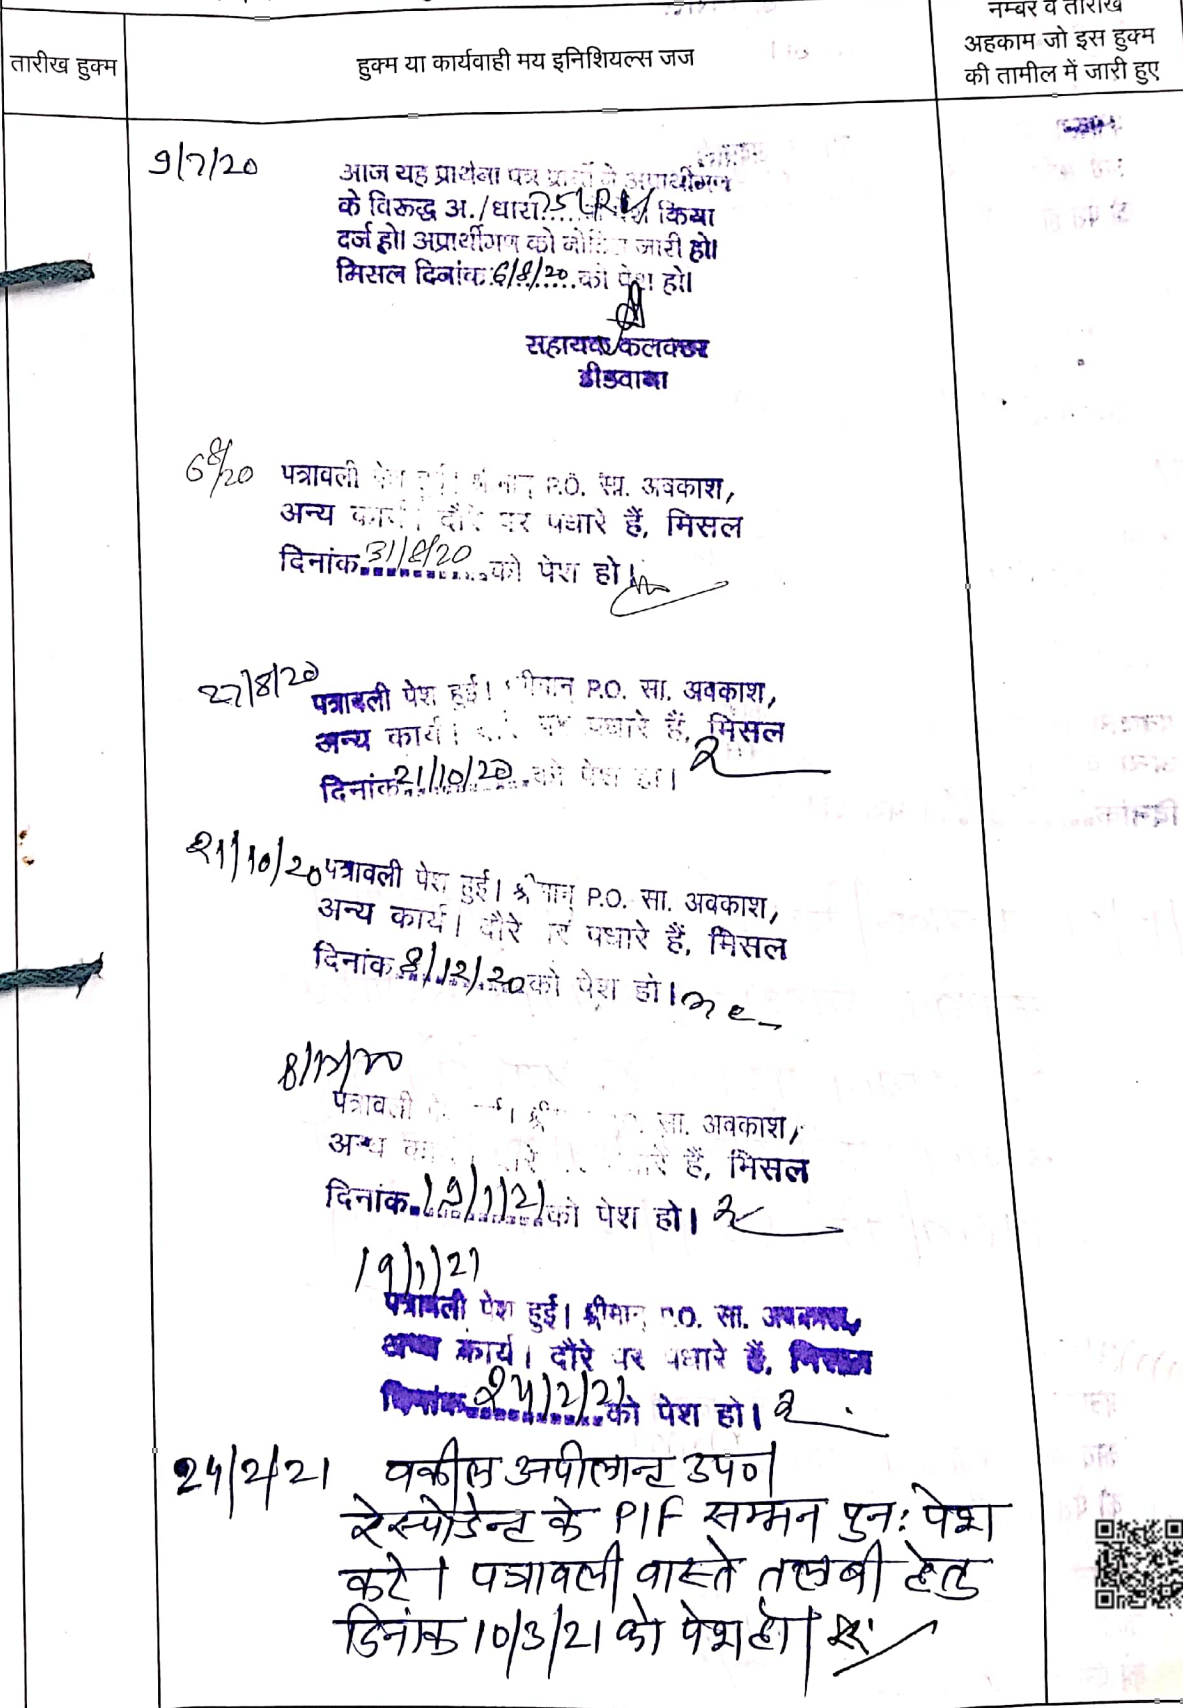 नम्बर व तारीख
तारीख हुक्म
हुक्म या कार्यवाही मय इनिशियल्स जज
अहकाम जो इस हुक्म
की तामील में जारी हुए
9/7/20
आज यह प्रार्थना पत्र प्रार्थी ने अप्रार्थीगण
के विरूद्ध अ./धारा 251 किया
दर्ज हो। अप्रार्थीगण को नोटिस जारी हो।
मिसल दिनांक 6/8/20 को पेश हो।
सहायक कलक्टर
डीडवाना
6/8/20 पत्रावली पेश हुई। श्रीमान् P.O. सा. अवकाश,
अन्य कार्य। दौरे पर पधारे हैं, मिसल
दिनांक 31/8/20 को पेश हो।
27/8/20
पत्रावली पेश हुई। श्रीमान् P.O. सा. अवकाश,
अन्य कार्य। दौरे पर पधारे हैं, मिसल
दिनांक 21/10/20 को पेश हो।
21/10/20 पत्रावली पेश हुई। श्रीमान् P.O. सा. अवकाश,
अन्य कार्य। दौरे पर पधारे हैं, मिसल
दिनांक 8/12/20 को पेश हो।
8/12/20
पत्रावली सा. अवकाश,
अन्य दौरे पधारे हैं, मिसल
दिनांक 19/1/21 को पेश हो।
19/1/21
पत्रावली पेश हुई। श्रीमान् P.O. सा. अवकाश,
अन्य कार्य। दौरे पर पधारे हैं, मिसल
दिनांक 24/2/21 को पेश हो।
24/2/21 वकील अपीलान्ट उप०।
रेस्पोडेन्ट के P/F सम्मन पुनः पेश
करे। पत्रावली वास्ते तलबी हेतु
दिनांक 10/3/21 को पेश हो।